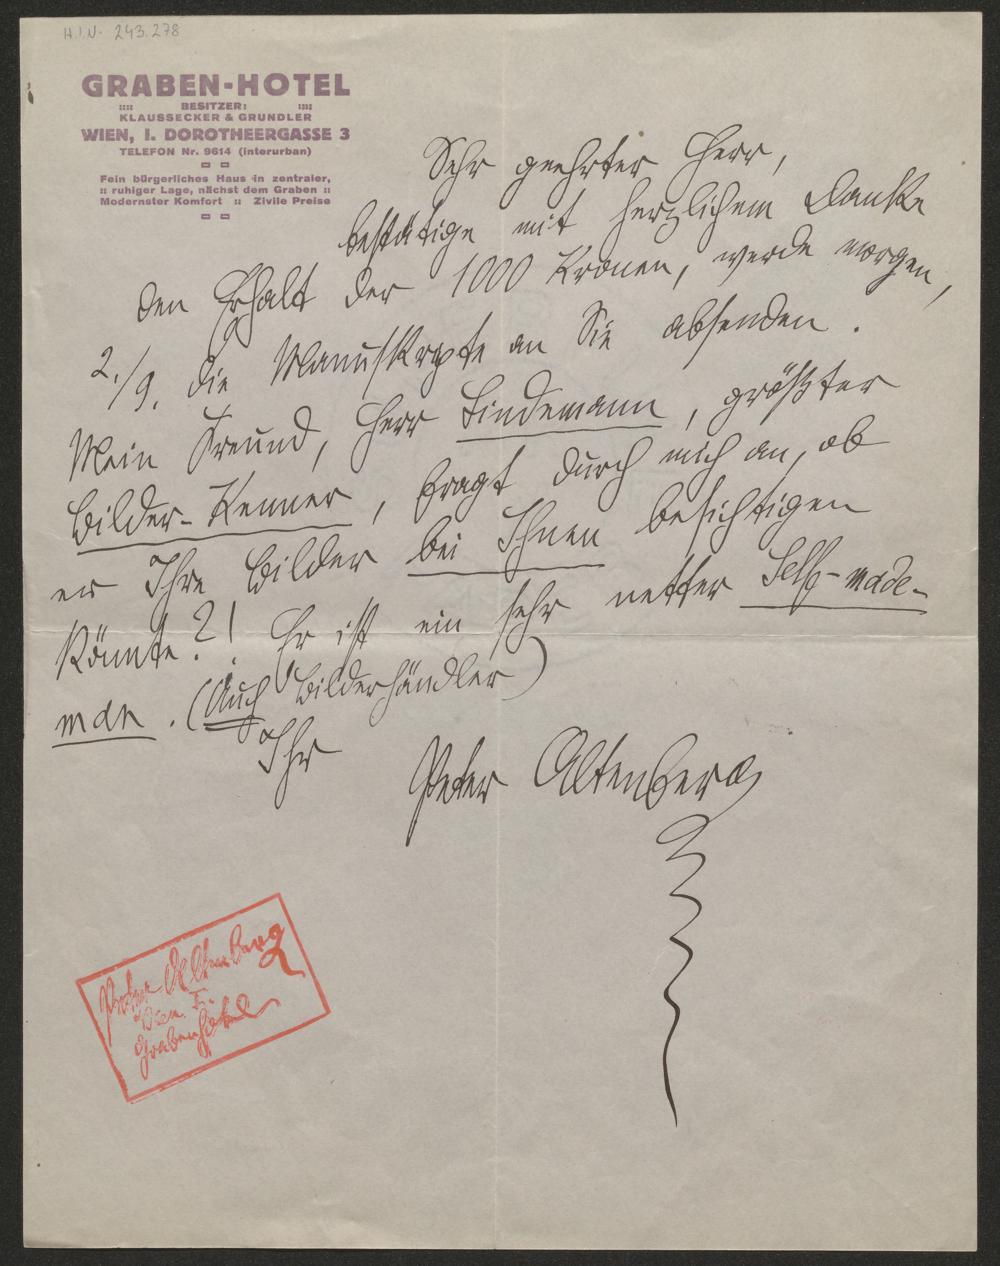 H.I.N. 243.278
GRABEN-HOTEL
:::: BESITZER: ::::
KLAUSSECKER & GRUNDLER
WIEN, I. DOROTHEERGASSE 3
TELEFON Nr. 9614 (interurban)
Fein bürgerliches Haus in zentraler,
:: ruhiger Lage, nächst dem Graben ::
Modernster Komfort :: Zivile Preise
Sehr geehrter Herr,
bestätige mit herzlichem Danke
den Erhalt der 1000 Kronen, werde morgen,
2./9. die Manuskripte an Sie absenden.
Mein Freund, Herr Lindemann, größter
Bilder-Kenner, fragt durch mich an, ob
er Ihre Bilder bei Ihnen besichtigen
könnte?! Er ist ein sehr netter Self-made-
man. (Auch Bilderhändler)
Ihr
Peter Altenberg
Peter Altenberg
Wien I.
Grabenhotel